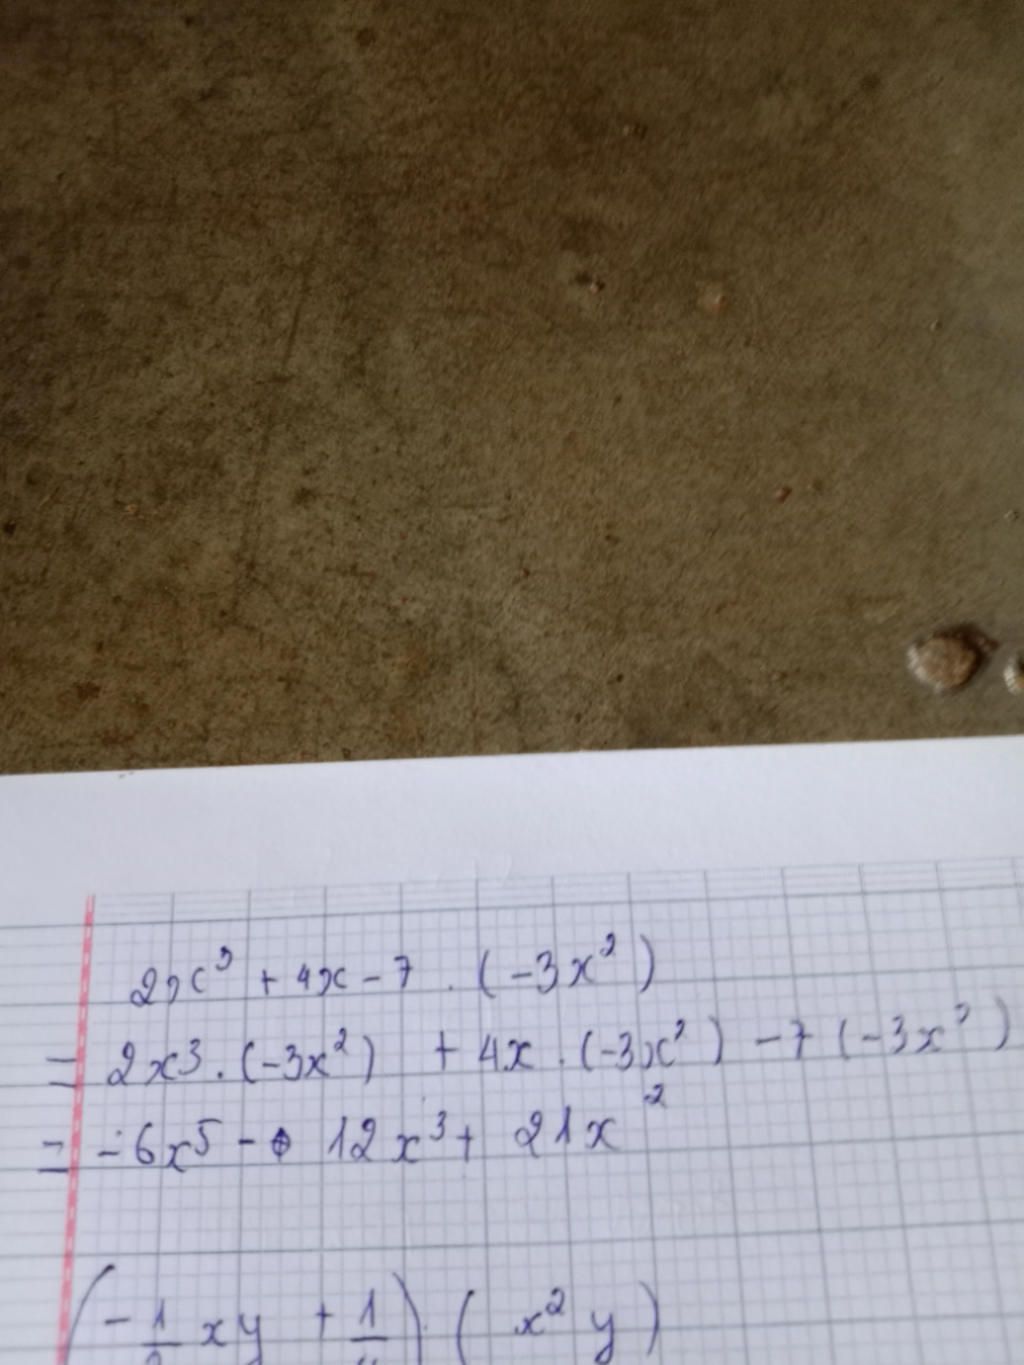 2x³ + 4x - 7 . (-3x²)
= 2x³ . (-3x²) + 4x . (-3x²) - 7 (-3x²)
= -6x⁵ - 12x³ + 21x²
(-1/ xy + 1/) . ( x² y)